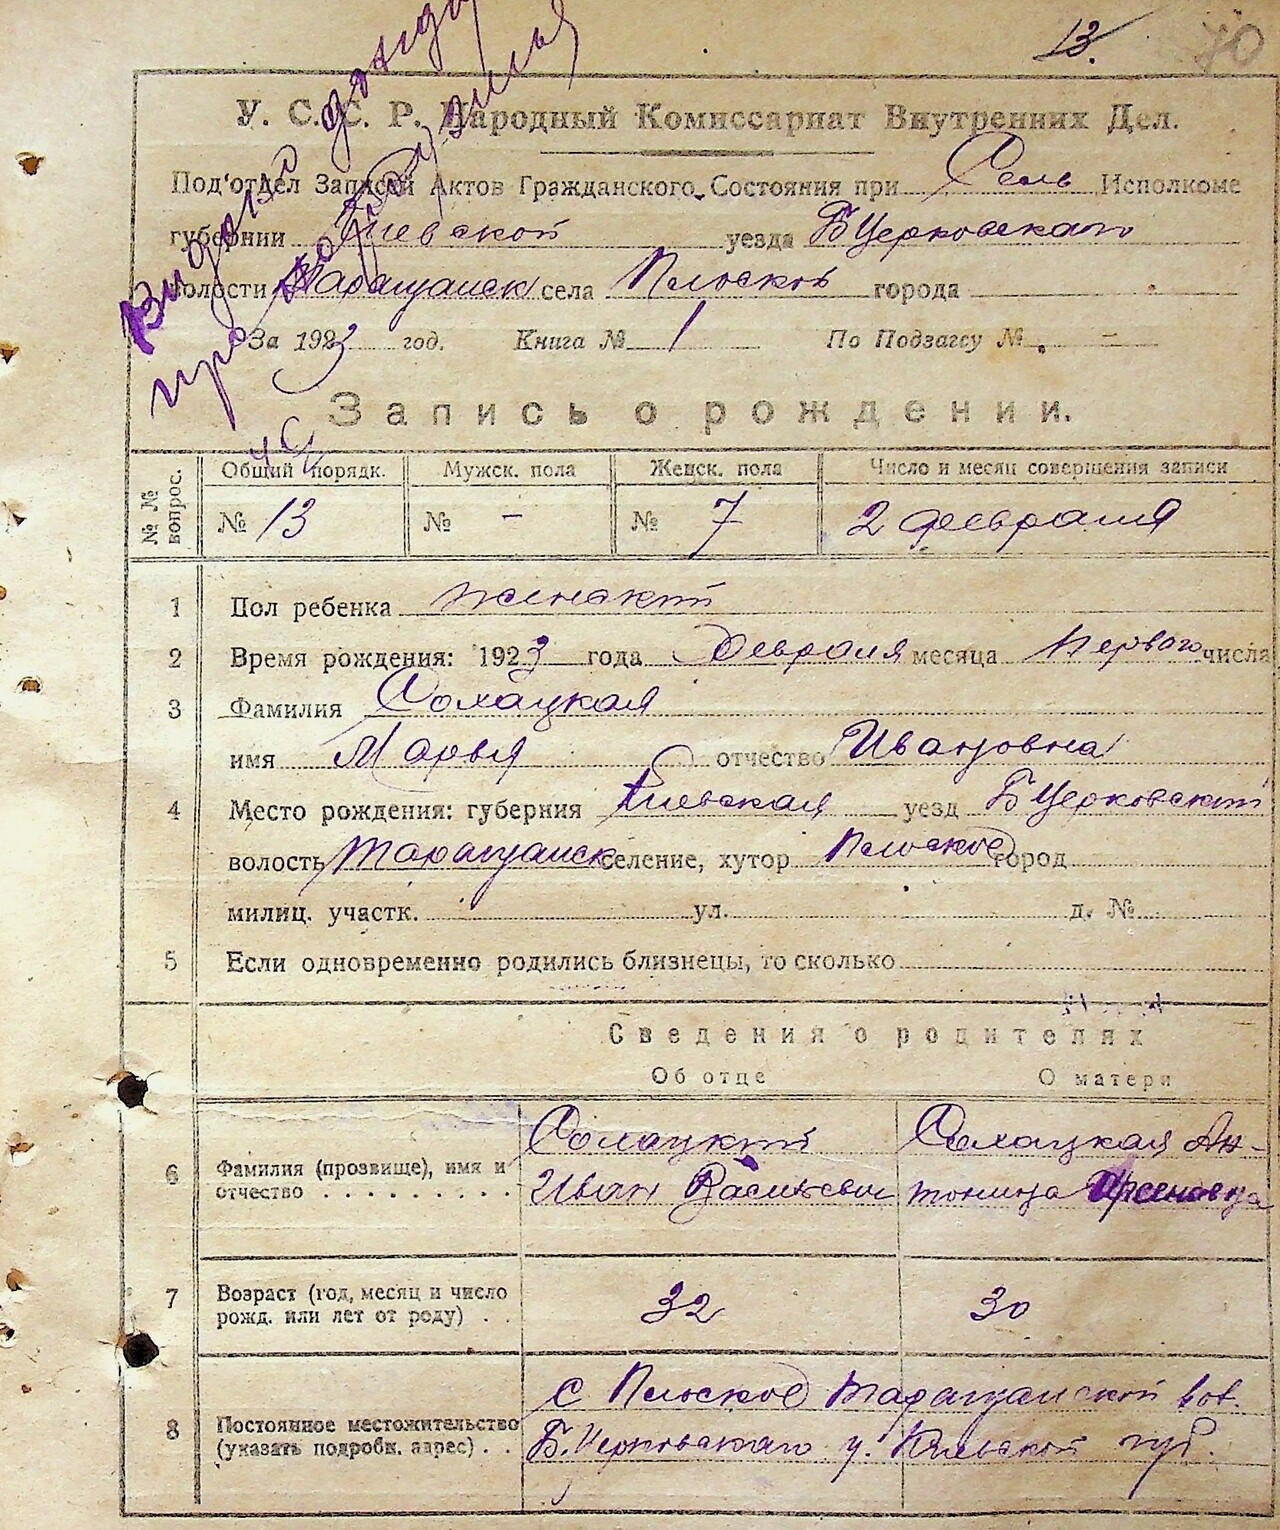 13.
70
У. С. С. Р. Народный Комиссариат Внутренних Дел.
Под'отдел Записей Актов Гражданского Состояния при Сель Исполкоме
губернии Киевской уезда БЦерковского
волости Таращанск села Плоское города
За 1923 год. Книга № 1 По Подзагсу № -
Запись о рождении.
№ № вопрос. Общий порядк. Мужск. пола Женск. пола Число и месяц совершения записи
№ 13 № - № 7 2 февраля
1 Пол ребенка женский
2 Время рождения: 1923 года Февраля месяца Первого числа
3 Фамилия Солацкая
имя Марья отчество Ивановна
4 Место рождения: губерния Киевская уезд БЦерковский
волость Таращанск селение, хутор Плоское город
милиц. участк. ул. д. №
5 Если одновременно родились близнецы, то сколько
Сведения о родителях
Об отце О матери
6 Фамилия (прозвище), имя и отчество . . . . . . . . . Солацкий Иван Васильевич Солацкая Антонина Арсеновна
7 Возраст (год, месяц и число рожд. или лет от роду) . . 32 30
8 Постоянное местожительство (указать подробн. адрес) . . с Плоское Таращанской вол.
Б.Церковского у. Киевской губ.